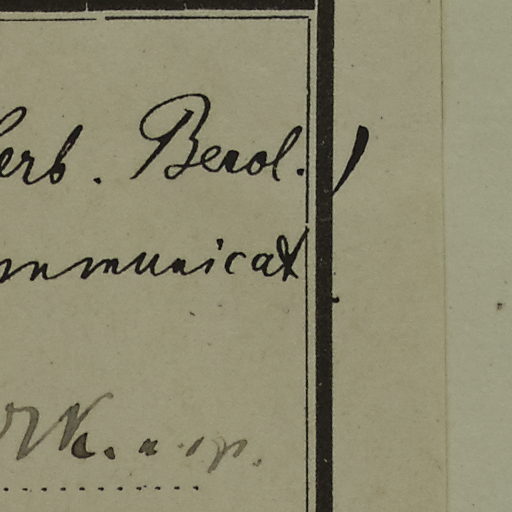 erb. Berol.)
mmunicat
n. sp.